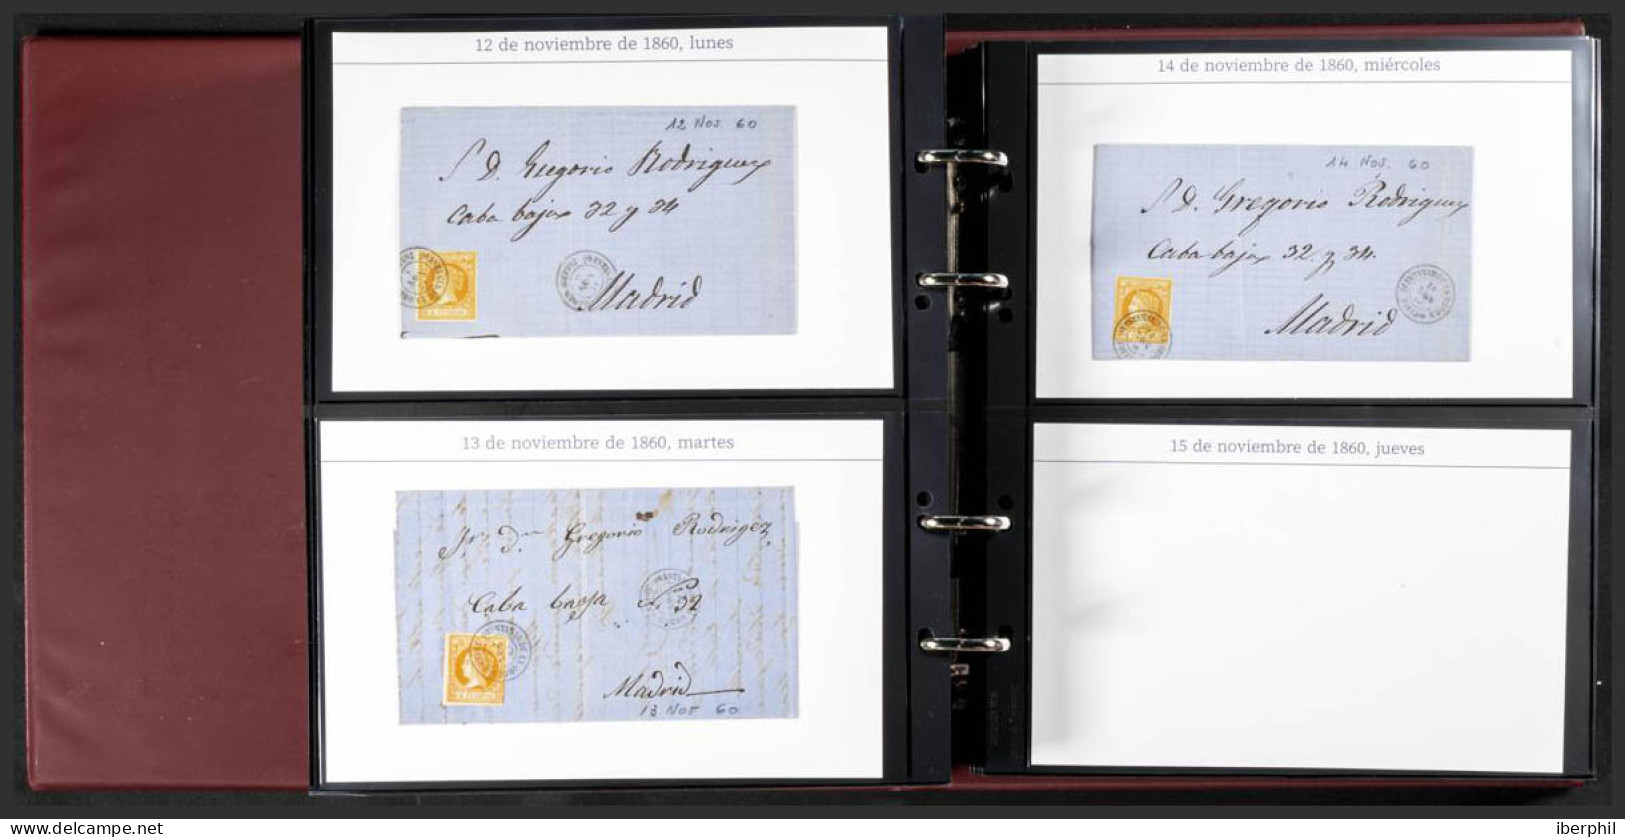 12 de noviembre de 1860, lunes
12 Nov. 60
S. D. Gregorio Rodriguez
Caba baja 32 y 34
Madrid
13 de noviembre de 1860, martes
Sr. Dn Gregorio Rodrigez
Caba baja 32
Madrid
13 Nov 60
14 de noviembre de 1860, miércoles
14 Nov. 60
S. D. Gregorio Rodriguez
Caba baja 32 y 34.
Madrid
15 de noviembre de 1860, jueves
iberphil